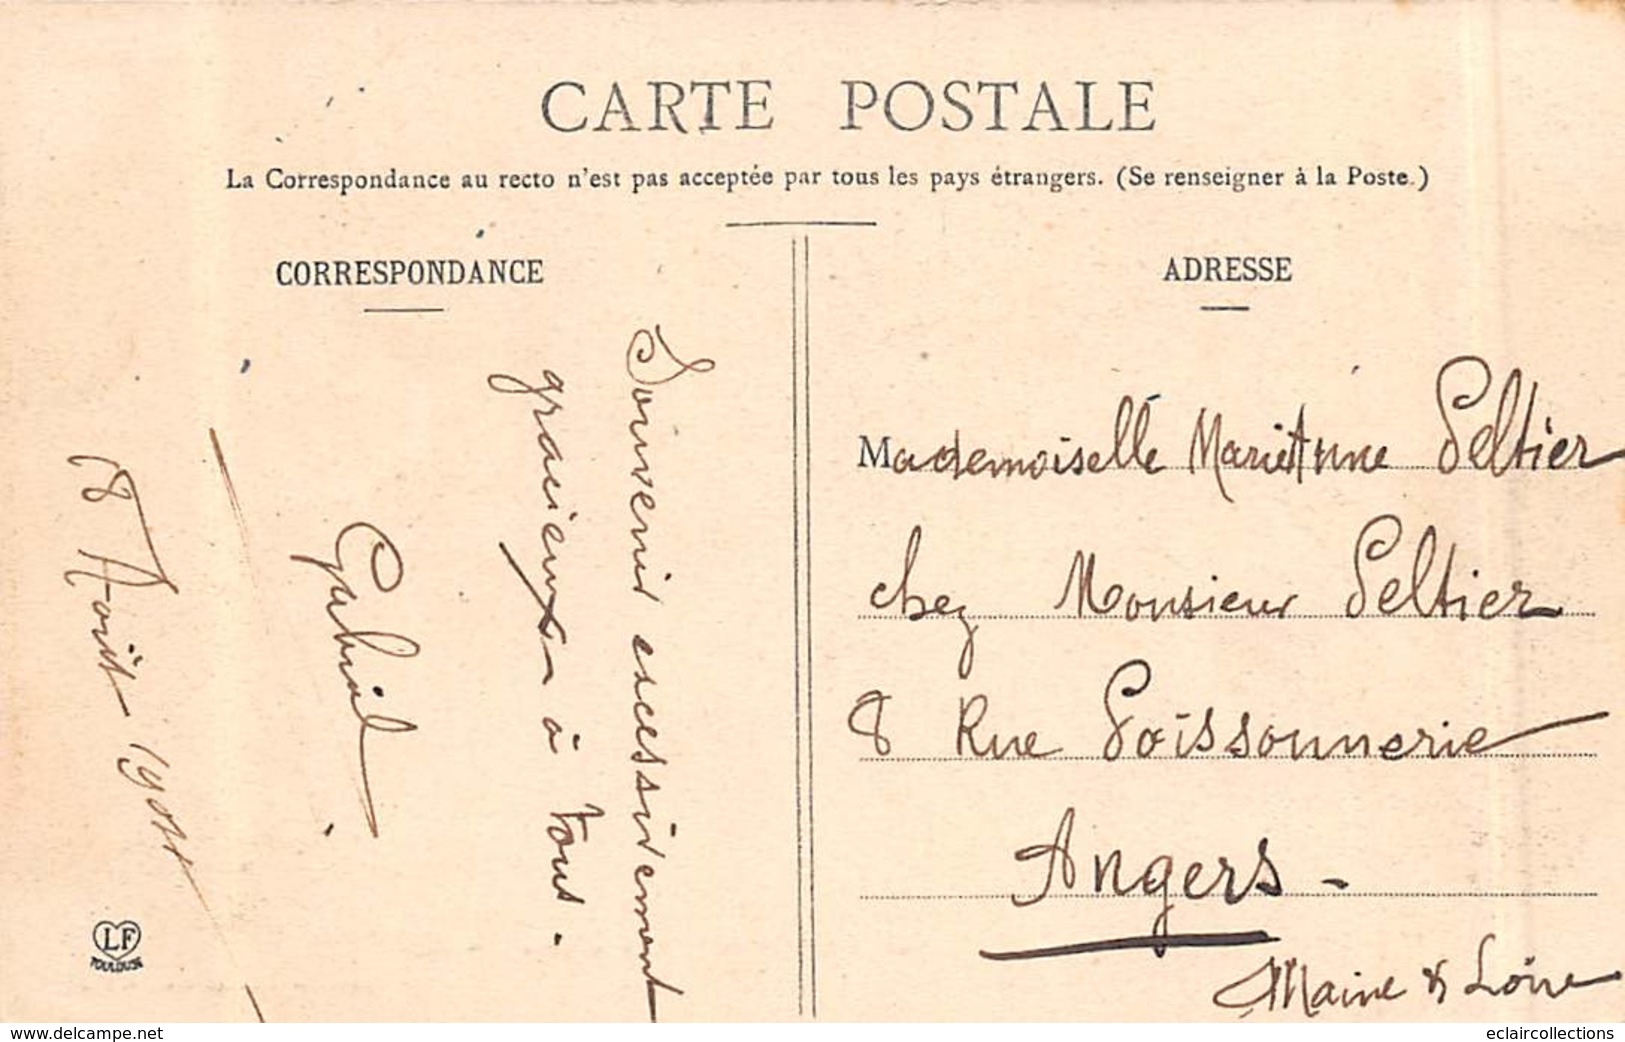 CARTE POSTALE
La Correspondance au recto n'est pas acceptée par tous les pays étrangers. (Se renseigner à la Poste.)
CORRESPONDANCE
Souvenir excessivement
gracieux à tous.
Gabriel
18 Août
LF
TOULOUSE
ADRESSE
Mademoiselle Marie Anne Peltier
chez Monsieur Peltier
8 Rue Poissonnerie
Angers -
Maine & Loire
www.delcampe.net
eclaircollections